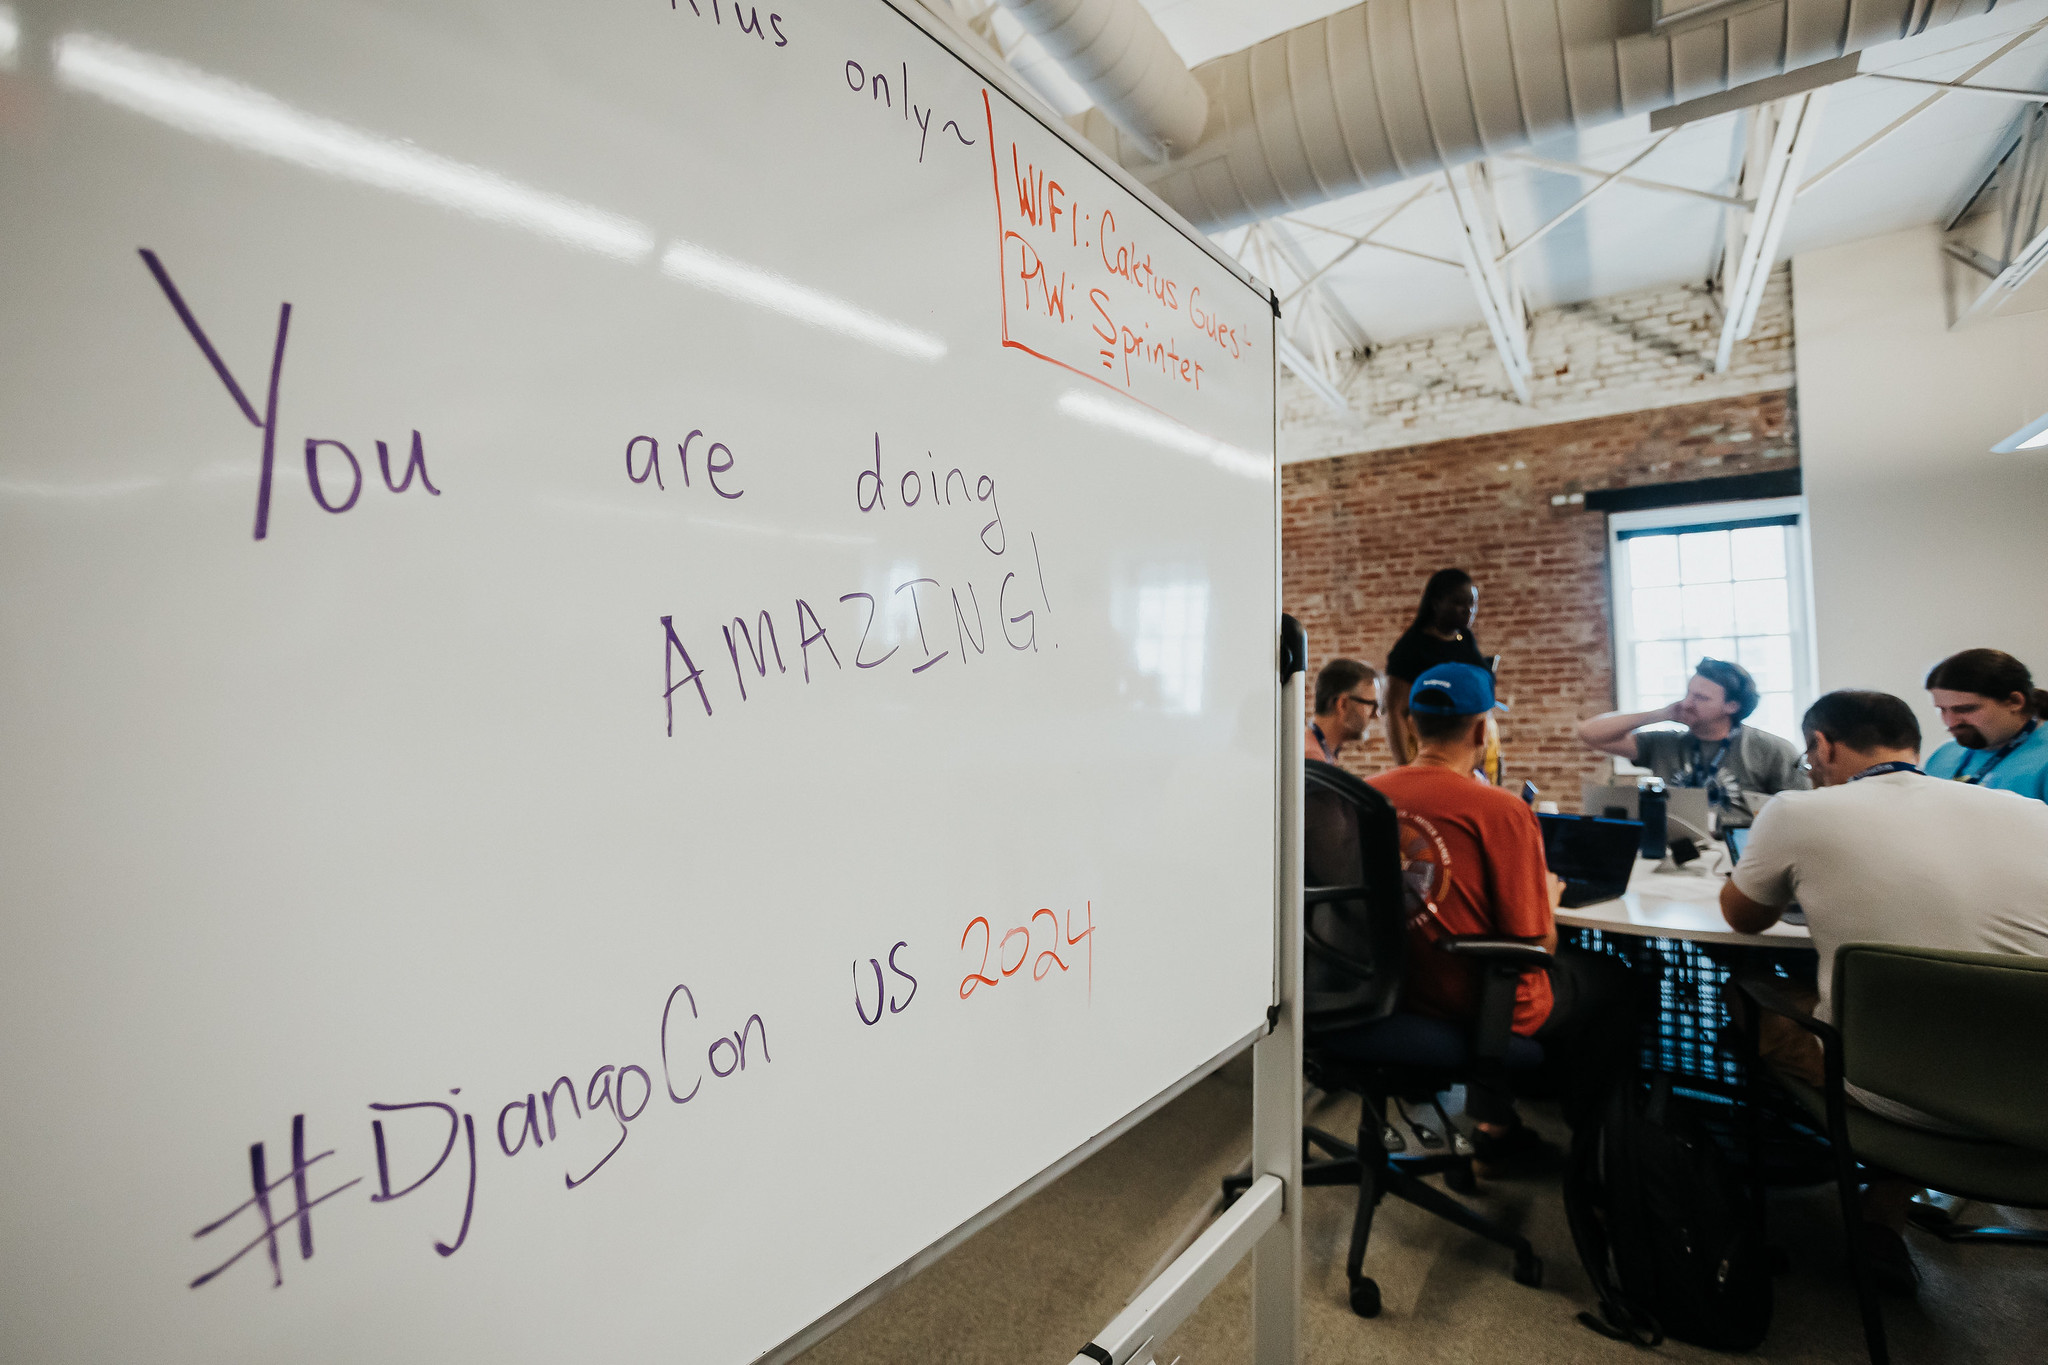 only~
WIFI: Caktus Guest
PW: Sprinter
You are doing
AMAZING!
#DjangoCon US 2024